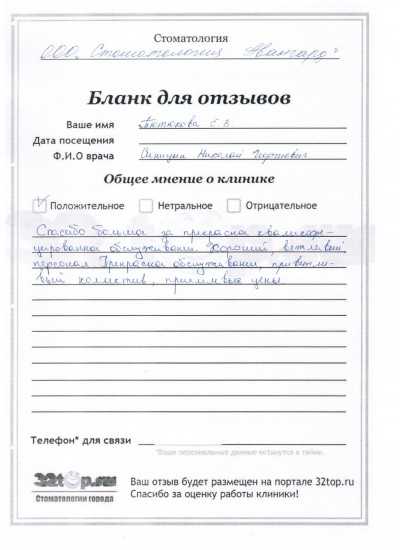 Стоматология
ООО "Стоматология Авангард"
Бланк для отзывов
Ваше имя Тютюкова Е.В.
Дата посещения
Ф.И.О врача Синицин Николай Георгиевич
Общее мнение о клинике
Положительное Нетральное Отрицательное
Спасибо большое за прекрасное квалифи-
цированное обслуживание. Хороший, вежливый
персонал. Прекрасное обслуживание, приветли-
вый коллектив, приемлемые цены.
Телефон* для связи
*Ваши персональные данные останутся в тайне.
32top.ru
Стоматологии города
Ваш отзыв будет размещен на портале 32top.ru
Спасибо за оценку работы клиники!